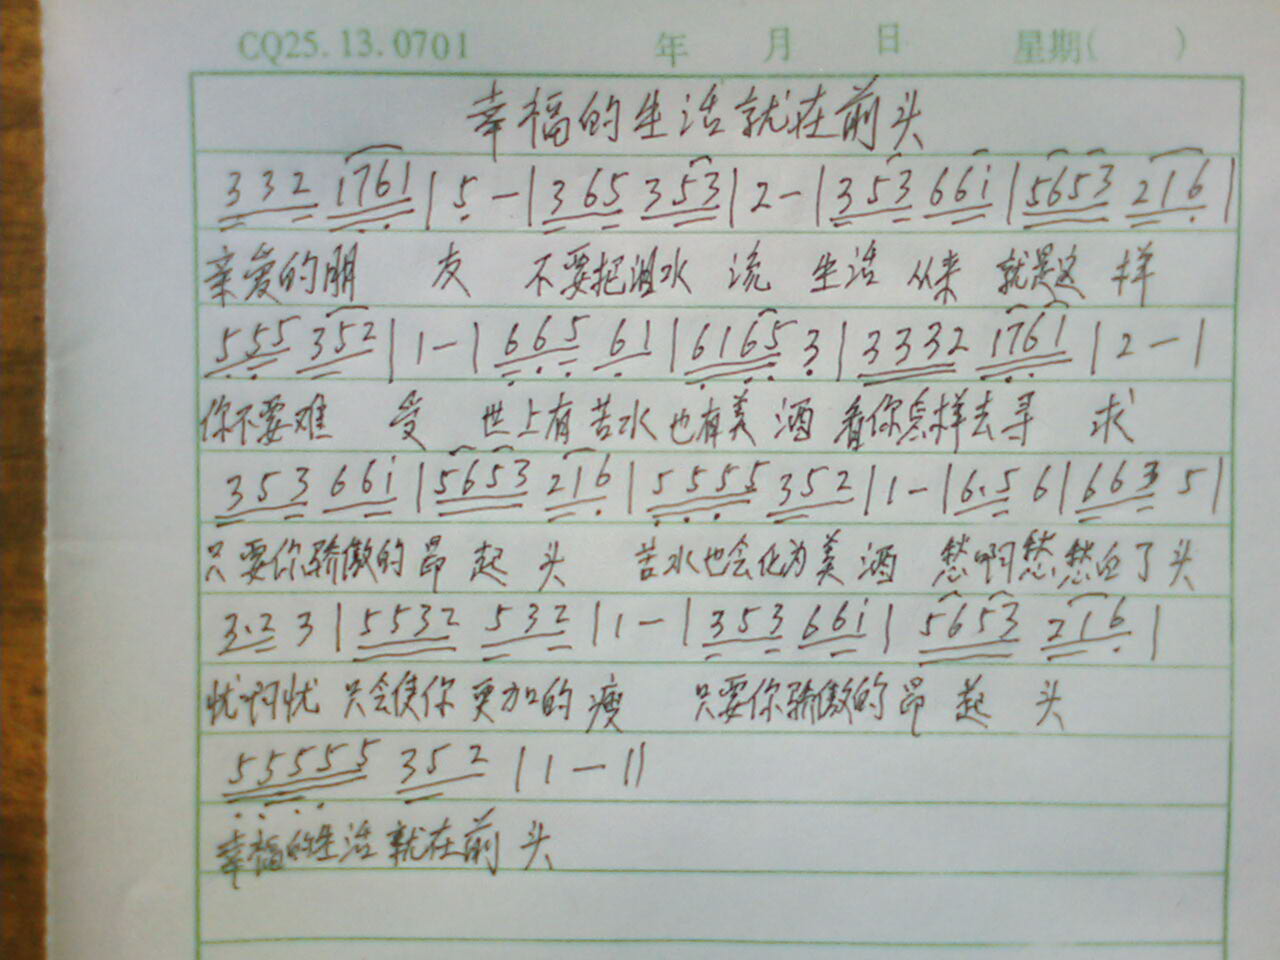 CQ25.13.0701 年 月 日 星期( )
幸福的生活就在前头
3 3 2 1761 | 5 - | 3 65 3 53 | 2 - | 3 53 66i | 5653 216 |
亲爱的朋 友 不要把泪水 流 生活 从来 就是这 样
555 352 | 1 - | 665 61 | 6165 3 | 3332 1761 | 2 - |
你不要难 受 世上有苦水也有美 酒 看你怎样去寻 求
353 66i | 5653 216 | 5555 352 | 1 - | 6.5 6 | 663 5 |
只要你骄傲的昂 起 头 苦水也会化为美 酒 愁啊愁 愁白了头
3.2 3 | 5532 532 | 1 - | 353 66i | 5653 216 |
忧啊忧 只会使你 更加的 瘦 只要你骄傲的昂 起 头
55555 352 | 1 - ||
幸福的生活 就在前 头